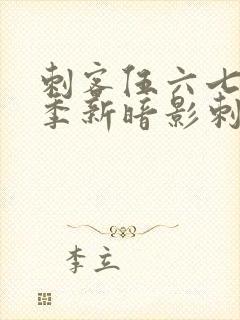 刺客伍六七
季新暗影刺
李立